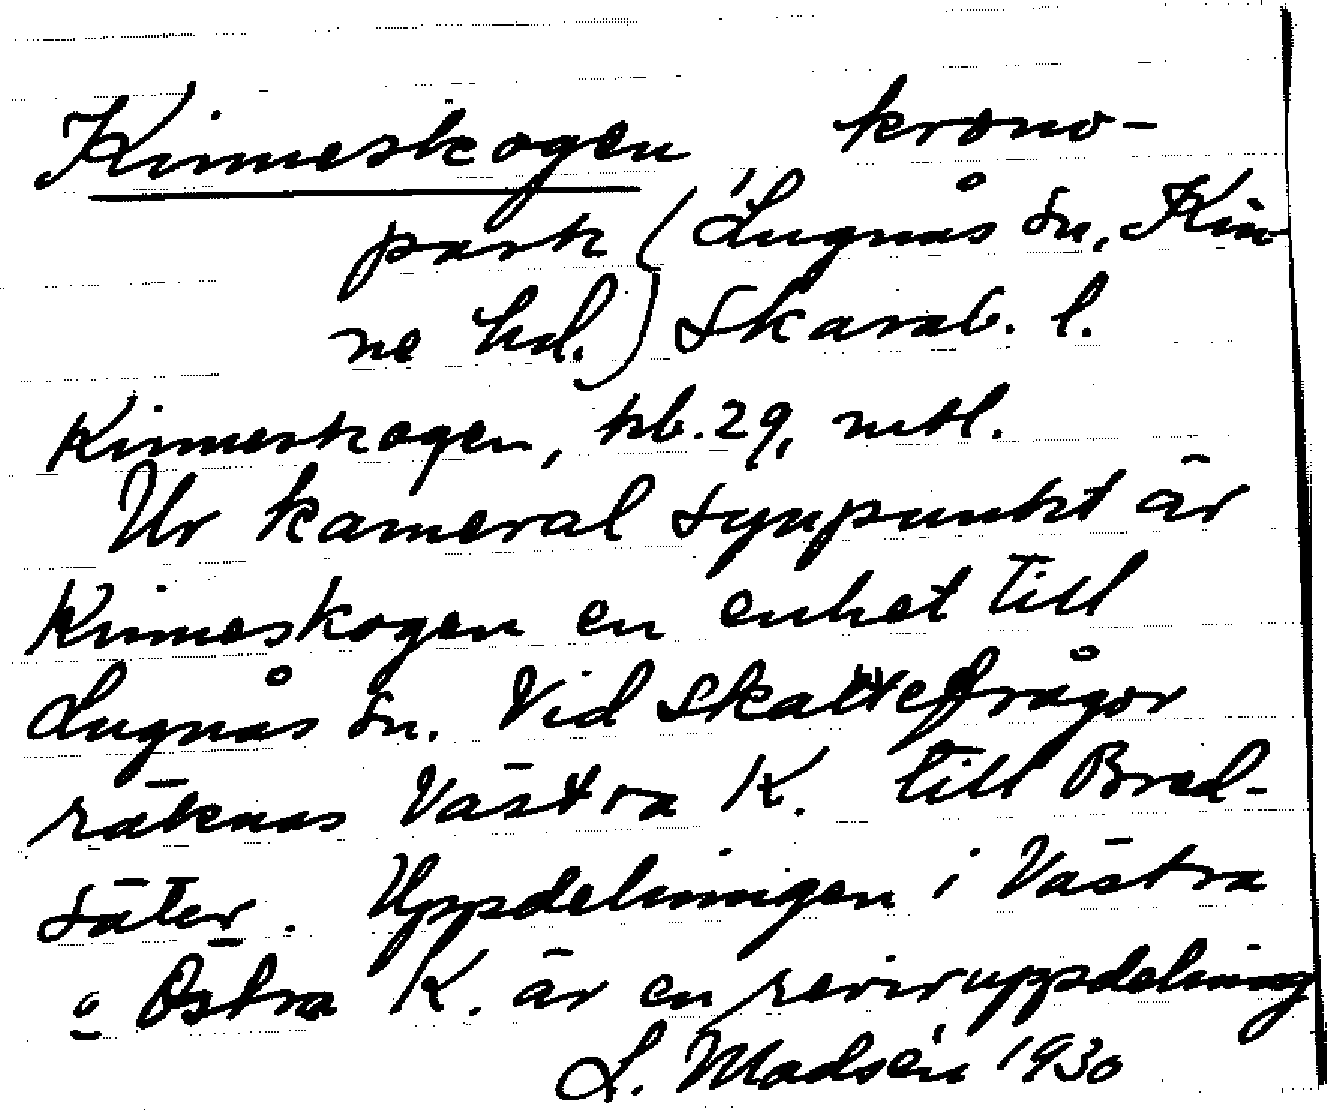 Kinneskogen krono-
park (Lugnås sn, Kin
ne hd.) Skarab. l.
Kinneskogen, hb. 29, mtl.
Ur kameral synpunkt är
Kinneskogen en enhet till
Lugnås sn. Vid skattefrågor
räknas Västra K. till Bred-
säter. Uppdelningen i Västra
o Östra K. är en reviruppdelning
L. Madsén 1930